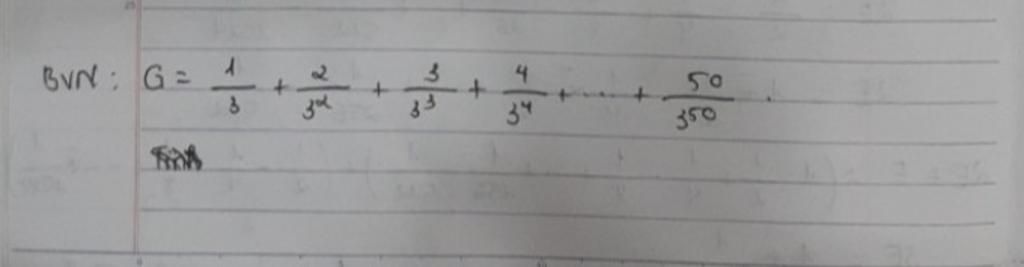 BVN: G = 1/3 + 2/3² + 3/3³ + 4/3⁴ + ... + 50/3⁵⁰.